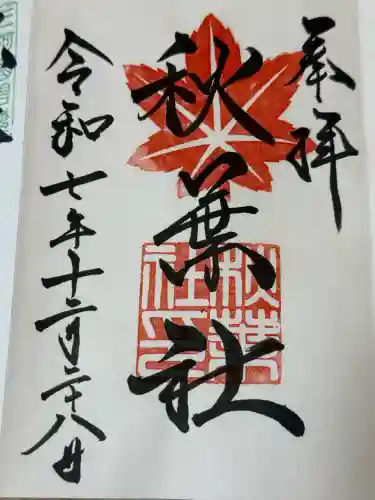 奉拝
秋葉社
秋葉社印
令和七年十二月二十八日